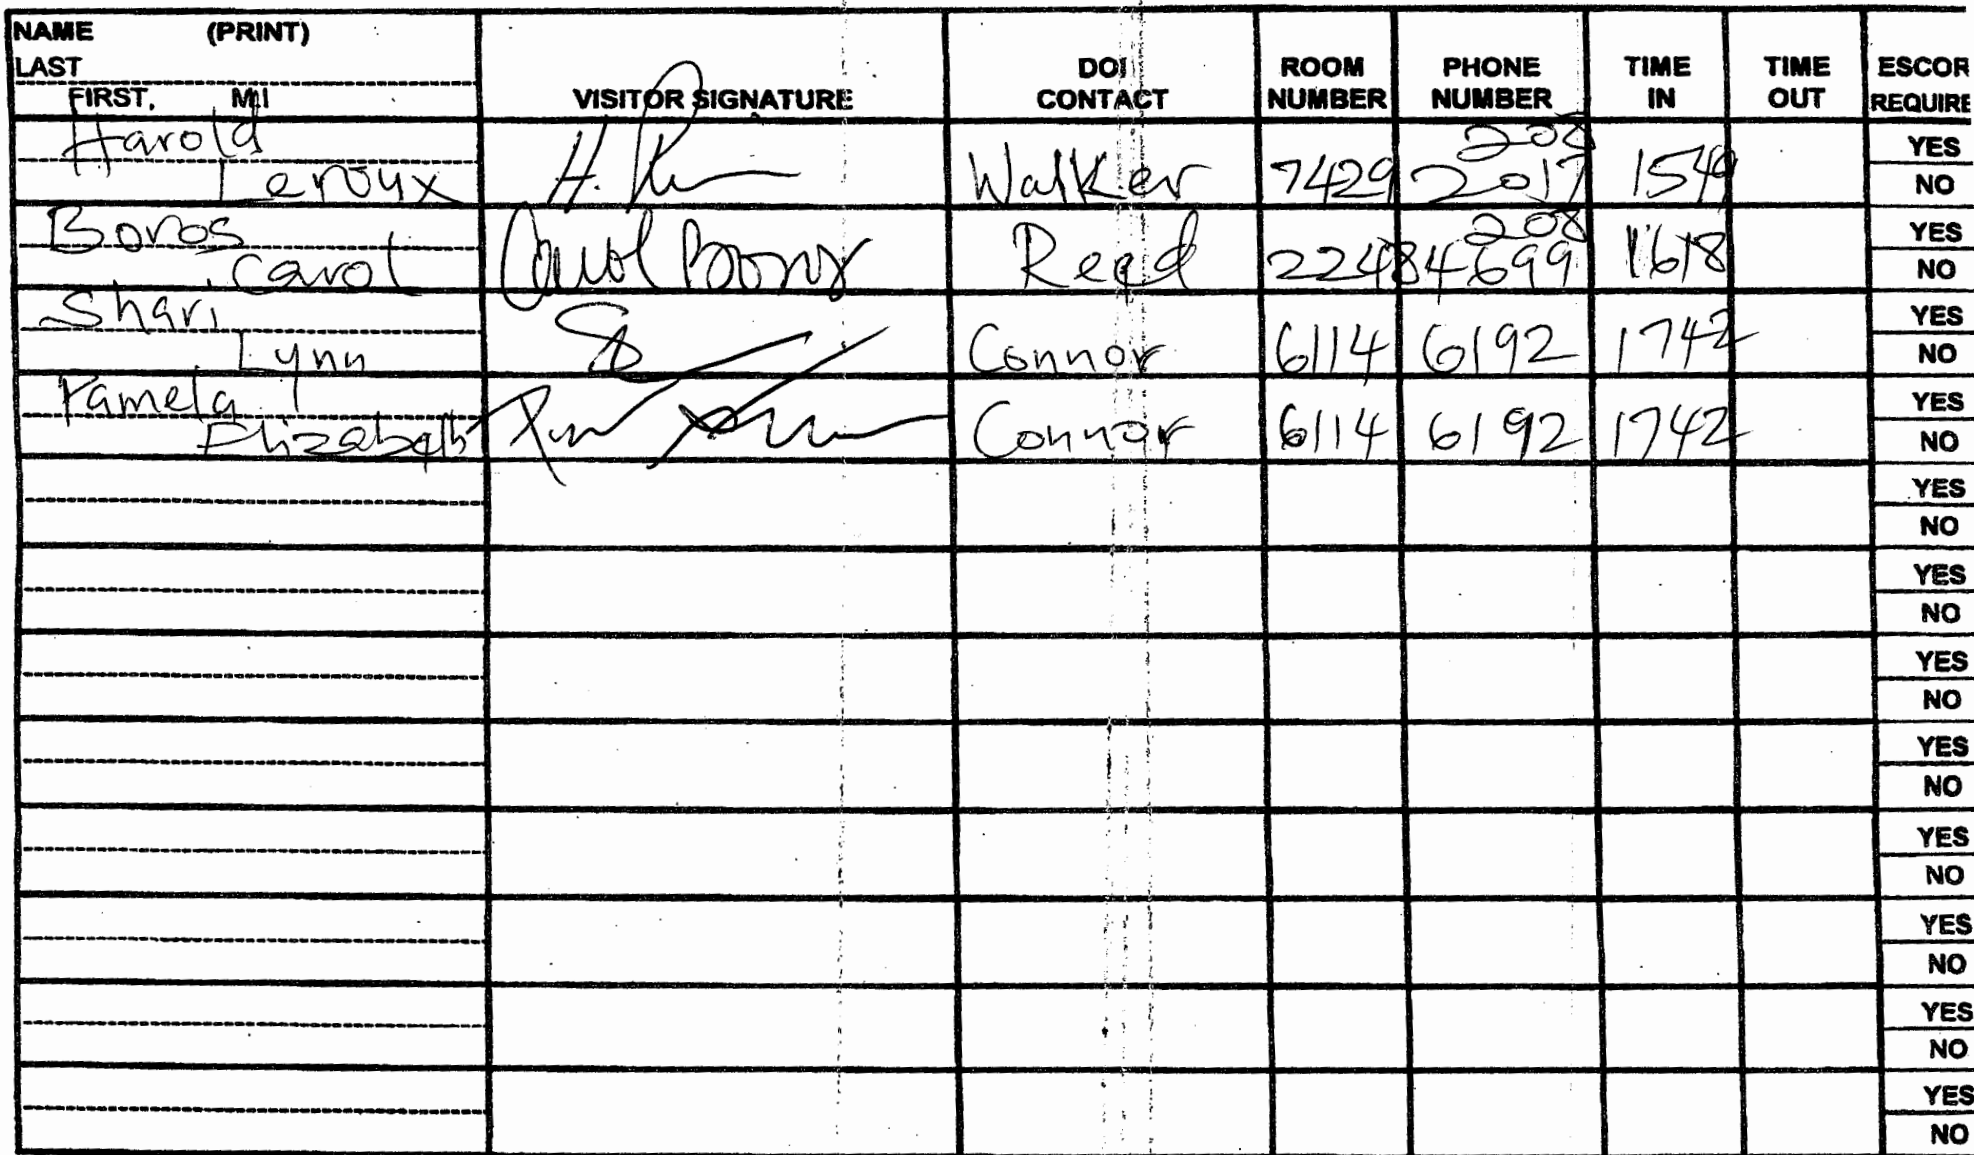 NAME (PRINT)
LAST
FIRST, MI
VISITOR SIGNATURE
DOI CONTACT
ROOM NUMBER
PHONE NUMBER
TIME IN
TIME OUT
ESCOR
REQUIRE
Harold Leroux H. Walker 7429 208 2017 1549 YES NO
Boros, Carol Carol Boros Reed 2248 208 4699 1618 YES NO
Shari Lynn Connor 6114 6192 1742 YES NO
Pamela Elizabeth Connor 6114 6192 1742 YES NO
YES
NO
YES
NO
YES
NO
YES
NO
YES
NO
YES
NO
YES
NO
YES
NO